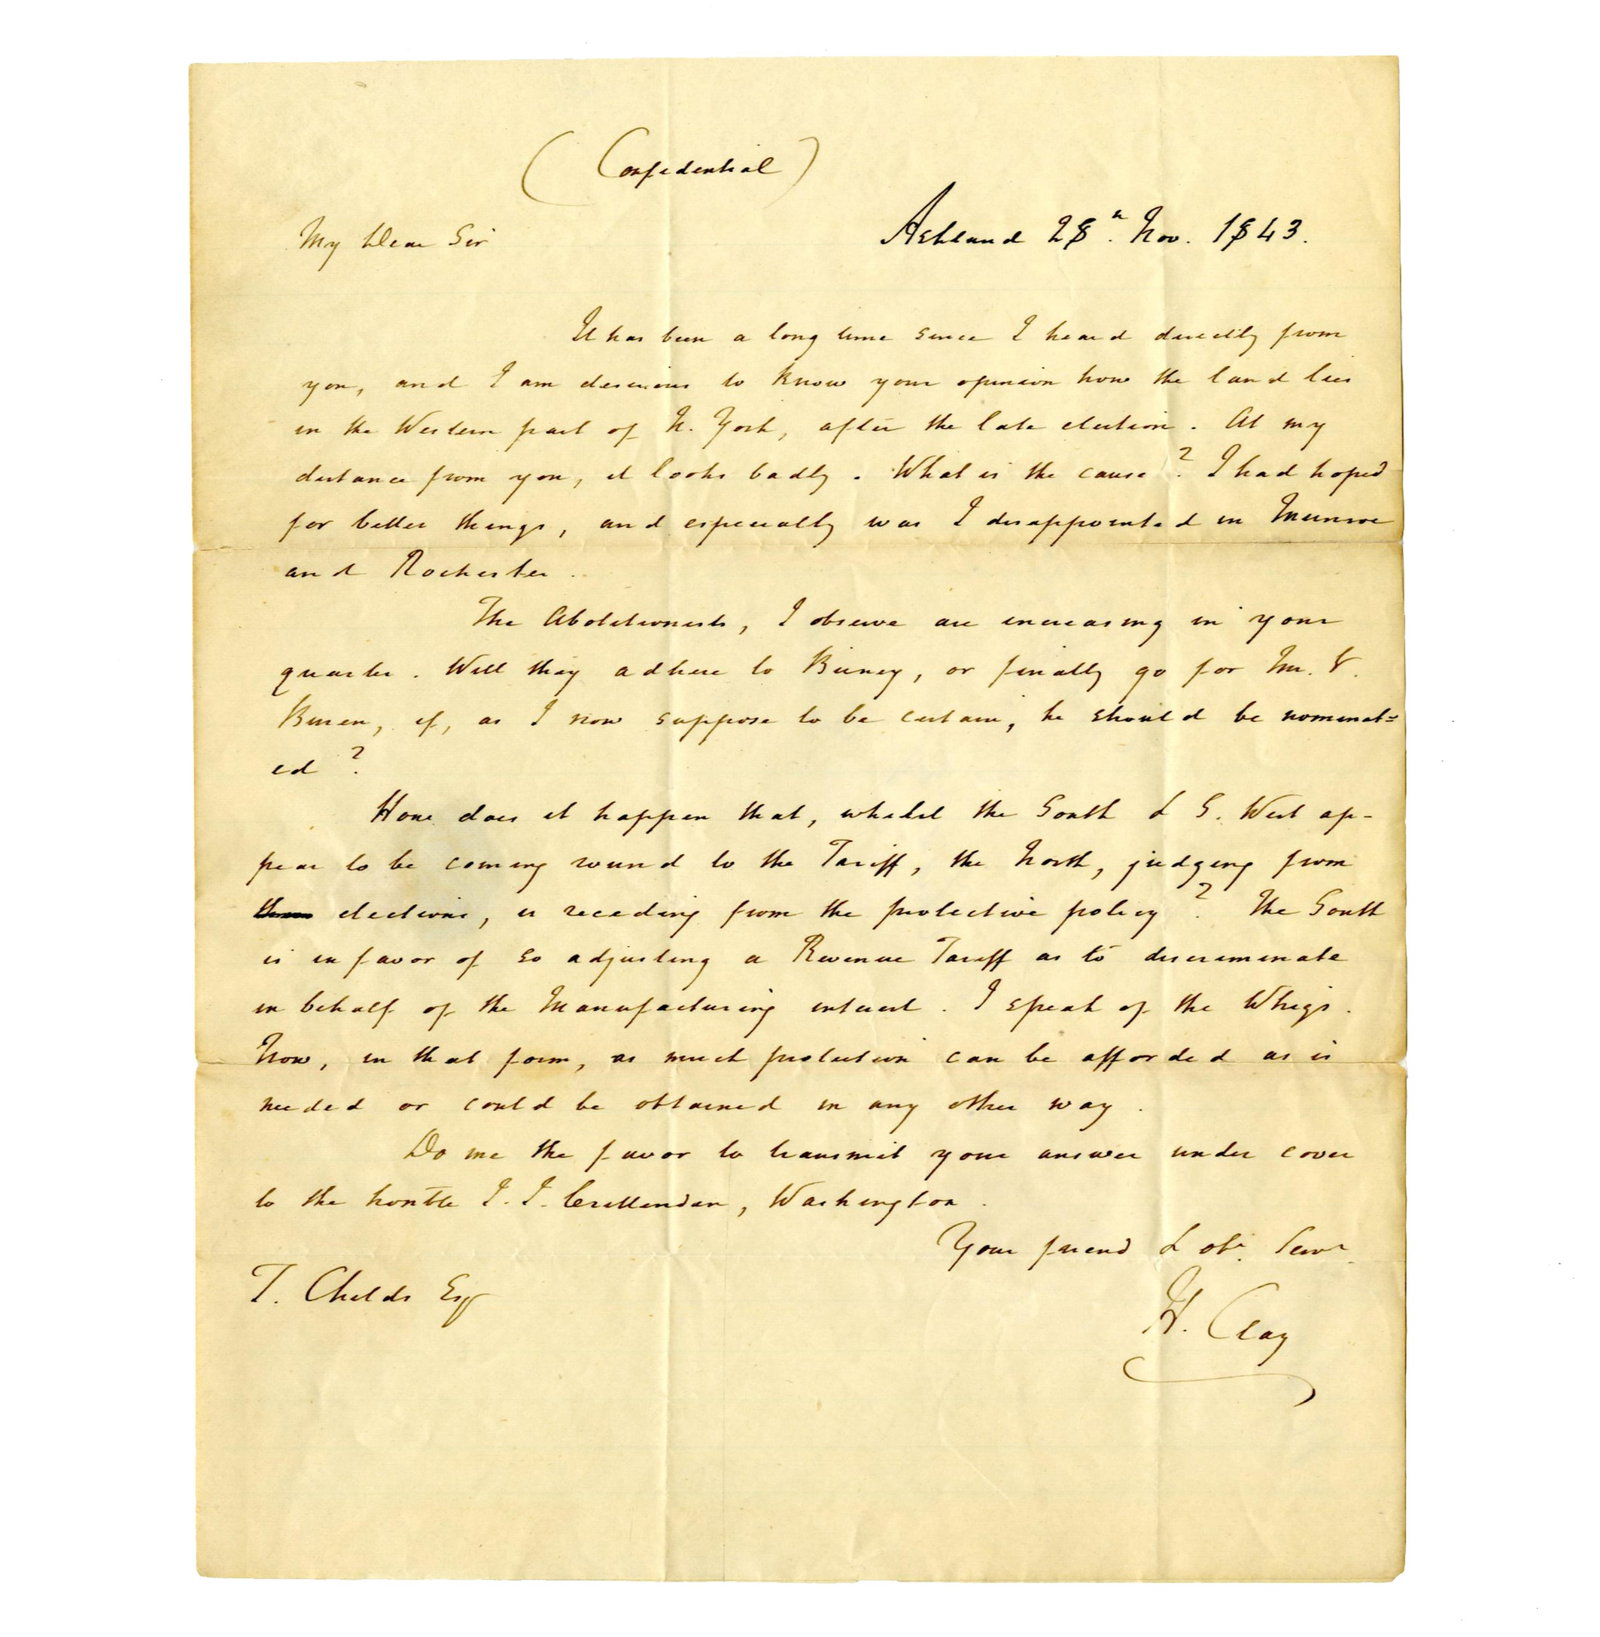 (Confidential)
My Dear Sir
Ashland 28h. Nov. 1843.
It has been a long time since I heard directly from
you, and I am desirous to know your opinion how the land lies
in the Western part of N. York, after the late election. At my
distance from you, it looks badly. What is the cause? I had hoped
for better things, and especially was I disappointed in Munroe
and Rochester.
The Abolitionists, I observe are increasing in your
quarter. Will they adhere to Birney, or finally go for Mr. V.
Buren, if, as I now suppose to be certain, he should be nominat=
ed?
How does it happen that, whilst the South & S. West ap-
pear to be coming round to the Tariff, the North, judging from
elections, is receding from the protective policy? The South
is in favor of so adjusting a Revenue Tariff as to discriminate
in behalf of the Manufacturing interest. I speak of the Whigs.
Now, in that form, as much protection can be afforded as is
needed or could be obtained in any other way.
Do me the favor to transmit your answer under cover
to the honble J. J. Crittenden, Washington.
Your friend & obt. Servt.
T. Childs Esq
H. Clay